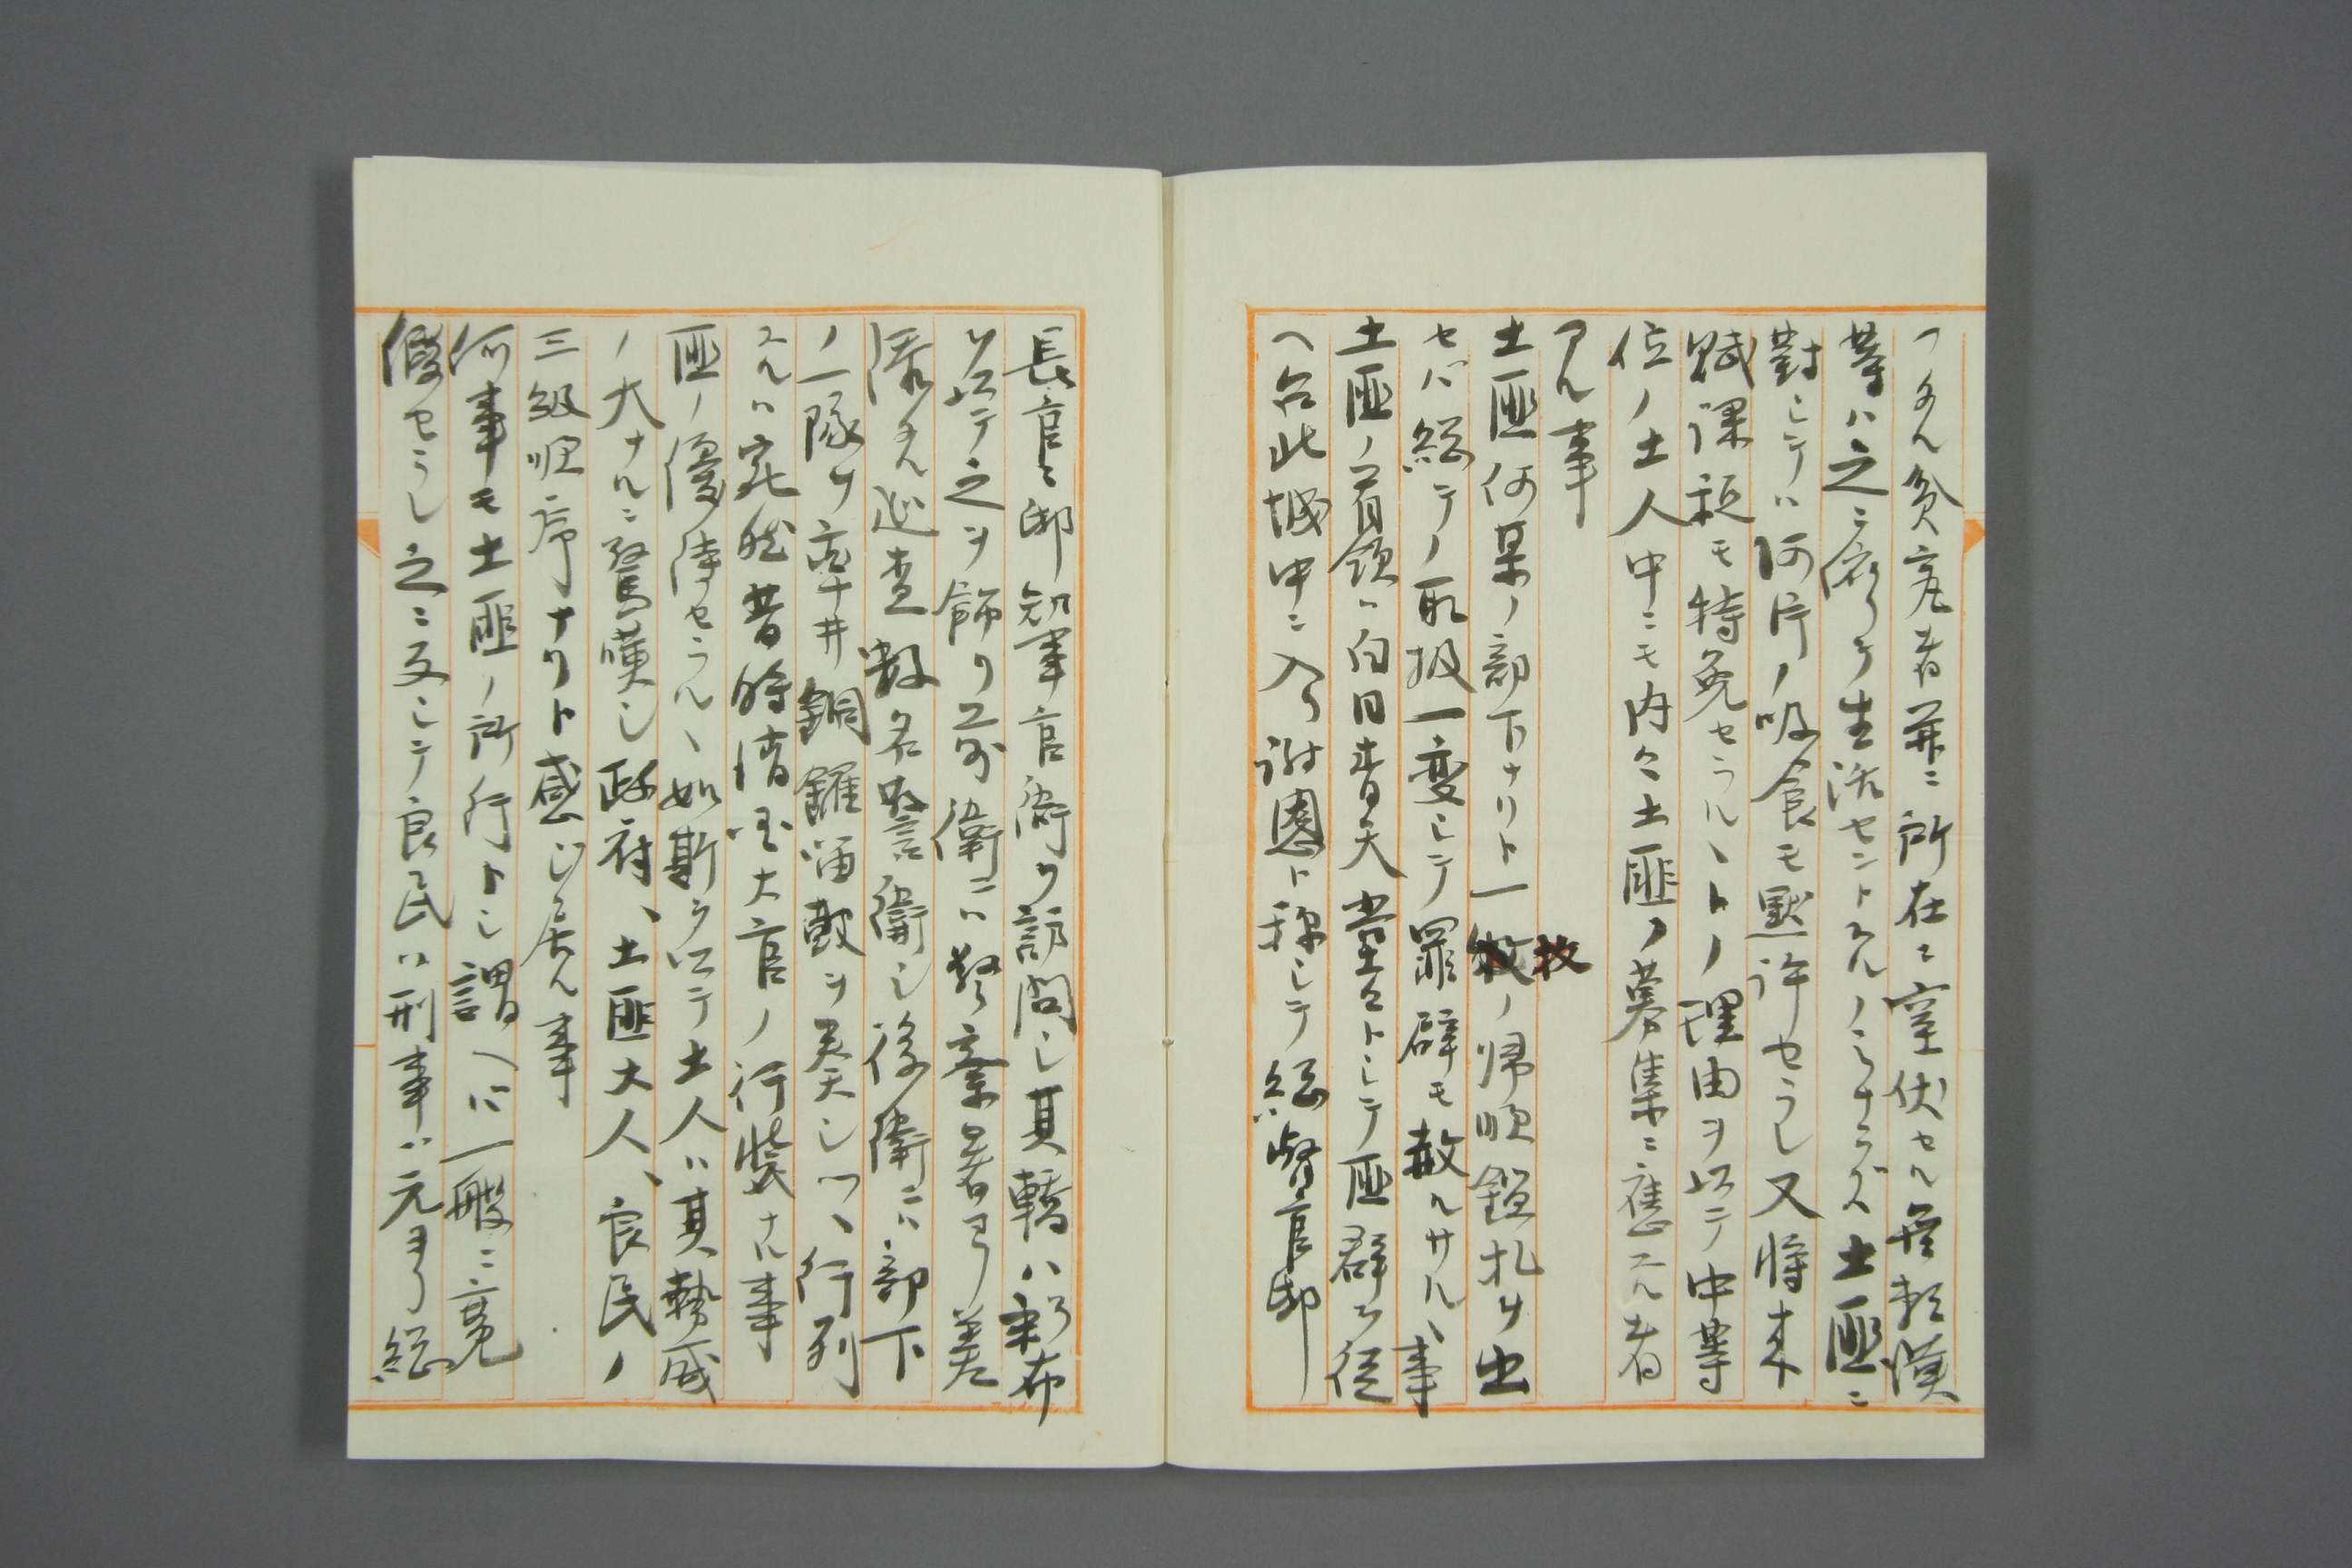 タル貧寠者并ニ所在ニ室伏セル無頼漢
等ハ之ニ依リテ生活セントスルノミナラズ土匪ニ
對シテハ阿片ノ吸食モ黙許セラレ又将来
賦課税モ特免セラルヽトノ理由ヲ以テ中等
位ノ土人中ニモ内々土匪ノ募集ニ應スル者
アル事
土匪何某ノ部下ナリト一枚ノ帰順鑑札ヲ出
セバ総テノ取扱一変シテ罪辟モ赦ルサルヽ事
土匪ノ首領ハ白日青天堂々トシテ匪群ヲ従
ヘ台北城中ニ入リ謝恩ト称シテ総督官邸
長官々邸知事官衙ヲ訪問シ其轎ハ彩布
ヲ以テ之ヲ飾リ前衛ニハ警察署ヨリ差
添タル巡査数名警衛シ後衛ニハ部下
ノ一隊ヲ率井銅鑼笛鼓ヲ奏シツヽ行列
スルハ宛然昔時清国大官ノ行装ナル事
匪ノ優待セラルヽ如斯ヲ以テ土人ハ其勢威
ノ大ナルニ驚嘆シ政府、土匪大人、良民ノ
三級順序ナリト感ジ居ル事
何事モ土匪ノ所行トシ謂ヘバ一般ニ寛
優セラレ之ニ反シテ良民ハ刑事ハ元ヨリ総